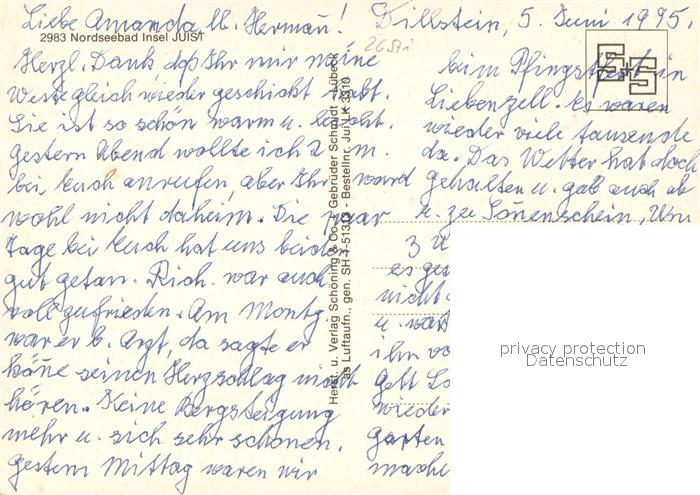 Liebe Amanda lb. Hermañ! Dillstein, 5. Juni 1995,
2983 Nordseebad Insel JUIST
Herzl. Dank daß Ihr mir meine
Weste gleich wieder geschickt habt.
Sie ist so schön warm u. leicht.
gestern Abend wollte ich 2 m.
bei Euch anrufen, aber Ihr ward
wohl nicht daheim. Die paar
Tage bei Euch hat uns beiden
gut getan. Rich. war auch
voll zufrieden. Am Montg.
war er b. Arzt, da sagte er
köñe seinen Herzschlag nicht
hören. Keine Bergsteigung
mehr u. sich sehr schonen.
gestern Mittag waren wir
Herst. u. Verlag Schöning & Co + Gebrüder Schmidt - Lübeck
as Luftaufn., gen. SH - Bestellnr. Jui LK 3310
E+S
beim Pfingstfest in
Liebenzell. Es waren
wieder viele tausende
da. Das Wetter hat doch
gehalten u. gab auch ab
u. zu Soñenschein, Um
3 U
es
nicht
u. wart
ihn vo
Gott
wieder
Garten
mache
privacy protection
Datenschutz